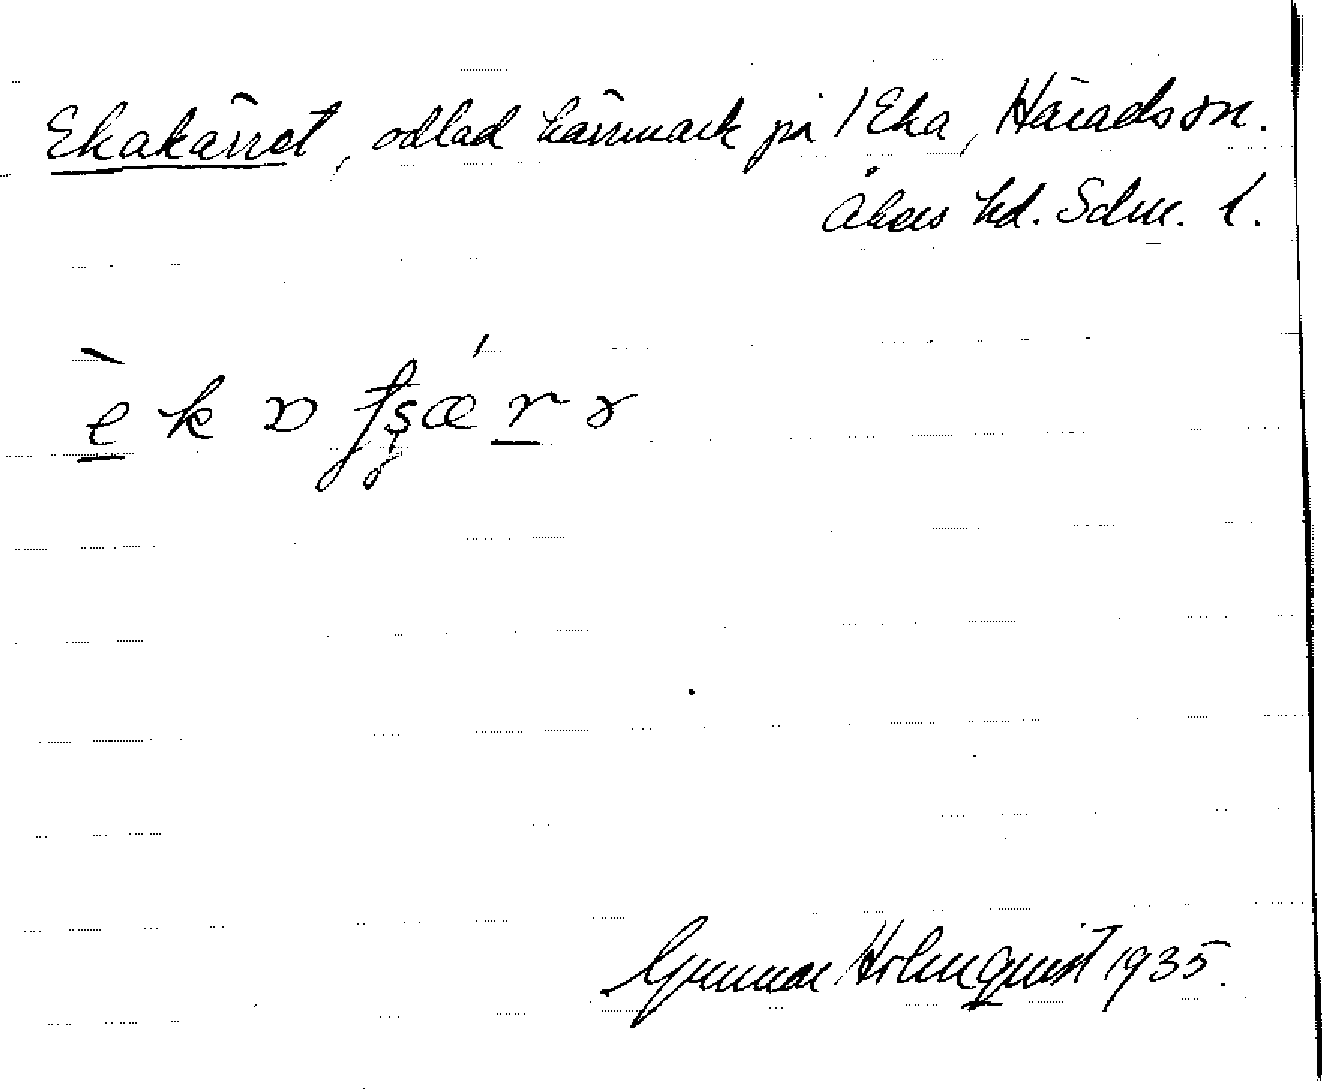 Ekakärret, odlad kärrmark på / Eka, Häradssn.
Åkers hd. Sdm. l.
Gunnar Holmquist 1935.